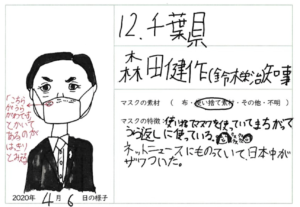 12.千葉県
森田健作(鈴木栄治)知事
マスクの素材 (布・使い捨て素材・その他・不明)
マスクの特徴:使い捨てマスクを使っていてまちがて
うら返しに使っている。
ネットニュースにものっていて日本中が
ザワついた。
「こちら
がうら
がわです」
とかいて
あるのが
はっきり
とみえる
2020年 4月 6日の様子